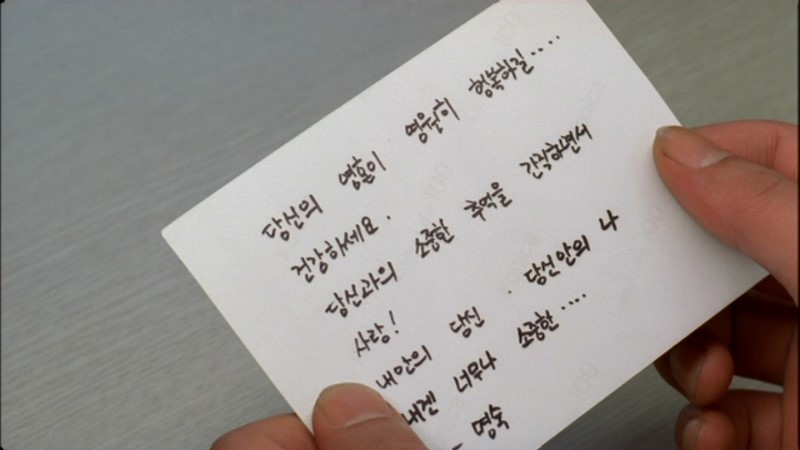 당신의 영혼이 영원히 행복하길....
건강하세요.
당신과의 소중한 추억을 간직하면서
사랑!
내안의 당신. 당신안의 나
내겐 너무나 소중한....
- 명숙